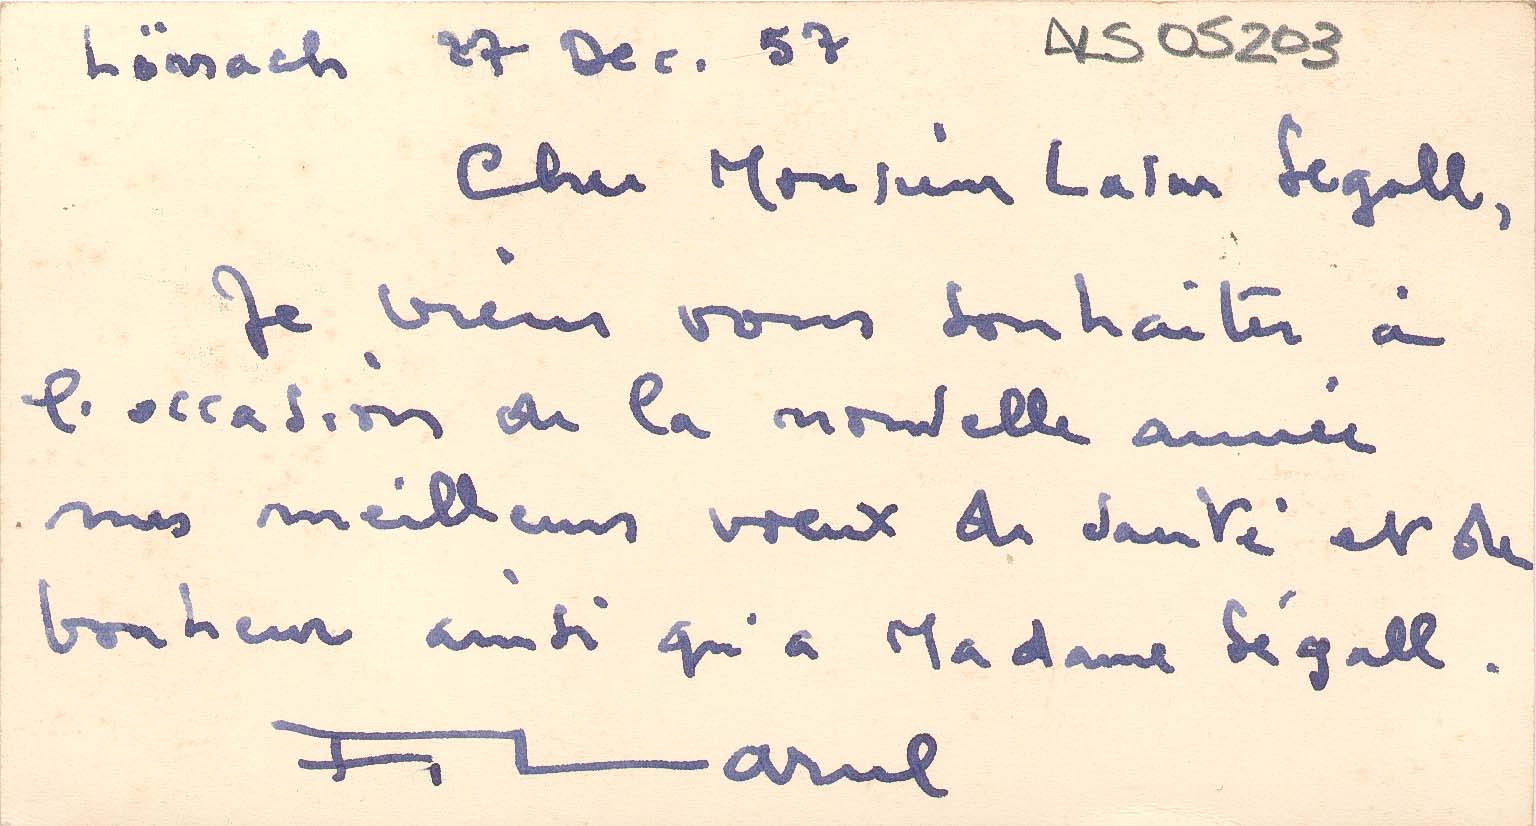 Lörrach 27 Dec. 57 ALS 05203
Cher Monsieur Lasar Segall,
Je viens vous souhaiter à
l'occasion de la nouvelle année
mes meilleurs voeux de santé et de
bonheur ainsi qu'a Madame Ségall.